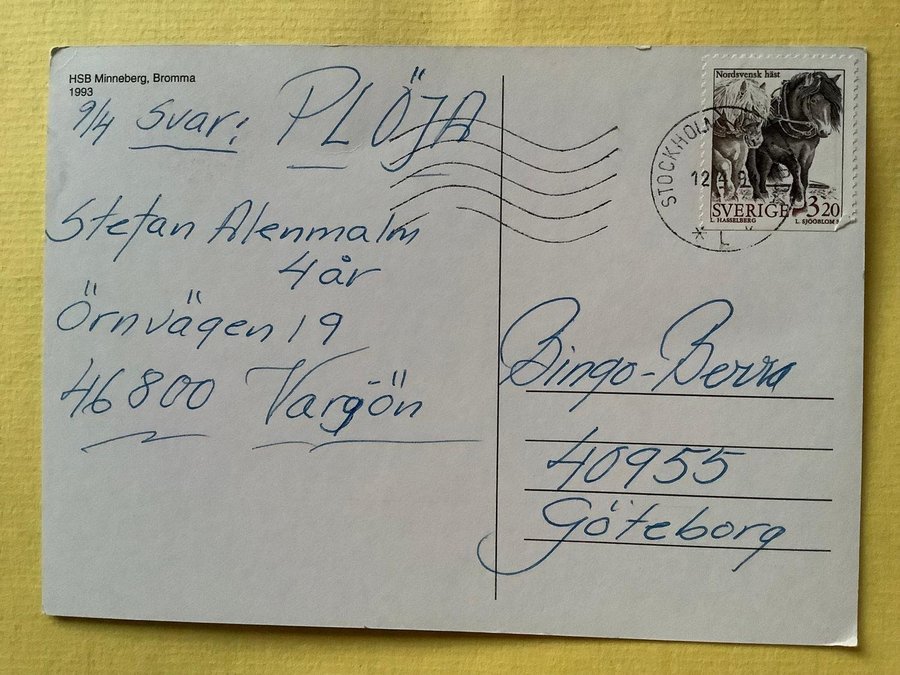 HSB Minneberg, Bromma
1993
9/4 Svar: PLÖJA
Stefan Alenmalm
4 år
Örnvägen 19
46800 Vargön
Nordsvensk häst
SVERIGE 3 20
L. HASSELBERG L. SJÖÖBLOM S
STOCKHOLM
12.4.9
* L *
Bingo-Berra
40955
Göteborg